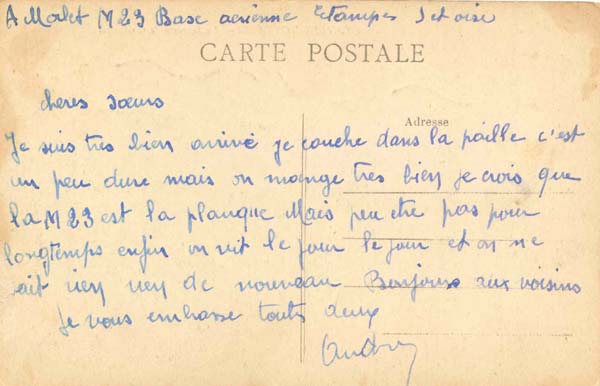 A Morlet M23 Base aerienne Etampes S et oise
CARTE POSTALE
Adresse
cheres sœurs
Je suis tres bien arrivé je couche dans la paille c'est
un peu dure mais on mange tres bien je crois que
la M23 est la planque Mais peu etre pas pour
longtemps enfin on vit le jour le jour et on ne
sait rien de nouveau Bonjour aux voisins
Je vous embrasse toutes deux
André